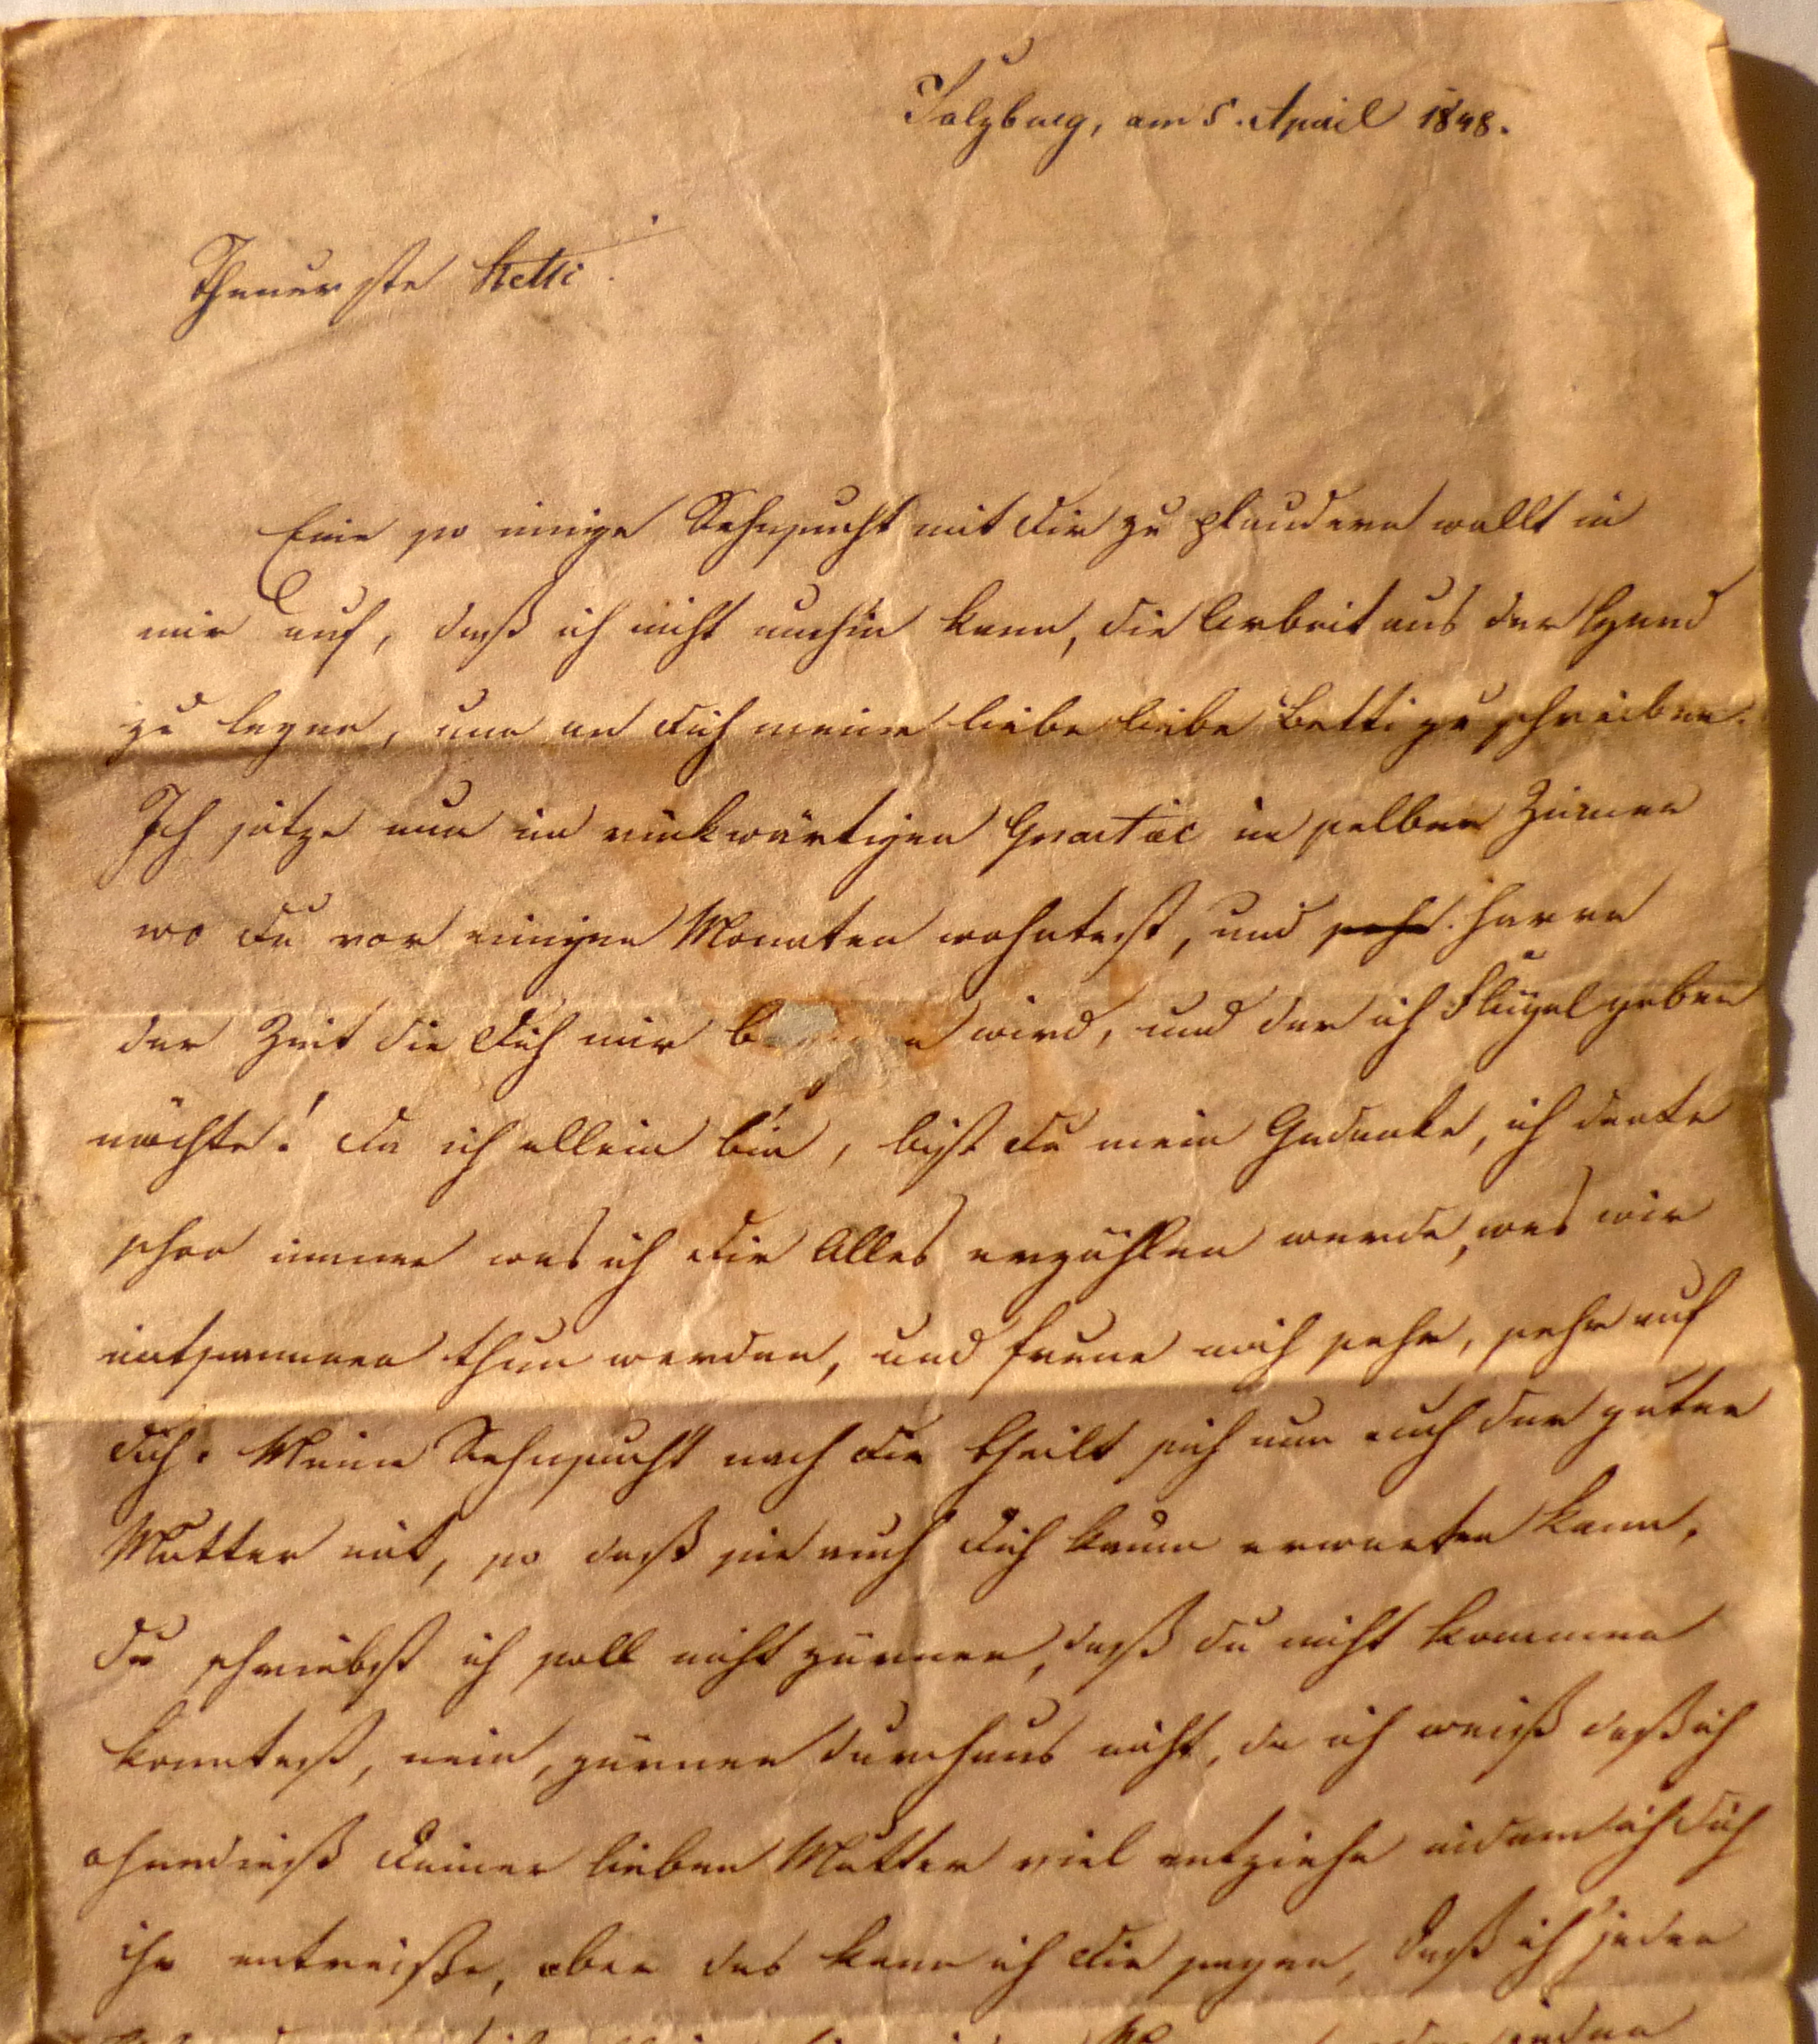 Salzburg, am 5. April 1848.
Theuerste Betti
Eine so innige Sehnsucht mit Dir zu plaudern wallt in
mir auf, daß ich nicht umhin kann, die Arbeit aus der Hand
zu legen, um an Dich meine liebe liebe Betti zu schreiben.
Ich sitze nun im rückwärtigen in selben Zimmer
wo Du vor einigen Monaten wohntest, und harre
der Zeit die Dich mir wird, und der ich Flügel geben
möchte! Da ich allein bin, bist Du mein Gedanke, ich denke
schon immer was ich Dir Alles erzählen werde, was wir
mitsammen thun werden, und freue mich sehr, sehr auf
Dich. Meine Sehnsucht nach Dir theilt sich nun auch der guten
Mutter mit, so daß sie auch Dich kaum erwarten kann.
Du schriebst ich soll nicht zürnen, daß Du nicht kommen
konntest, nein, zürnen durchaus nicht, da ich weiß daß ich
ohnedieß Deiner lieben Mutter viel entziehe indem ich Dich
ihr entreiße, aber das kann ich Dir sagen, daß ich jeden